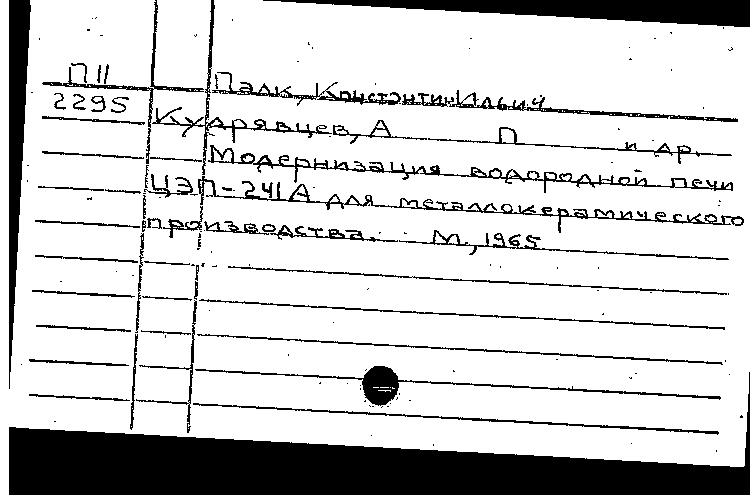 П11
Палк, Константин Ильич
2295
Кудрявцев, А П и др.
Модернизация водородной печи
ЦЭП-241А для металлокерамического
производства. М., 1965